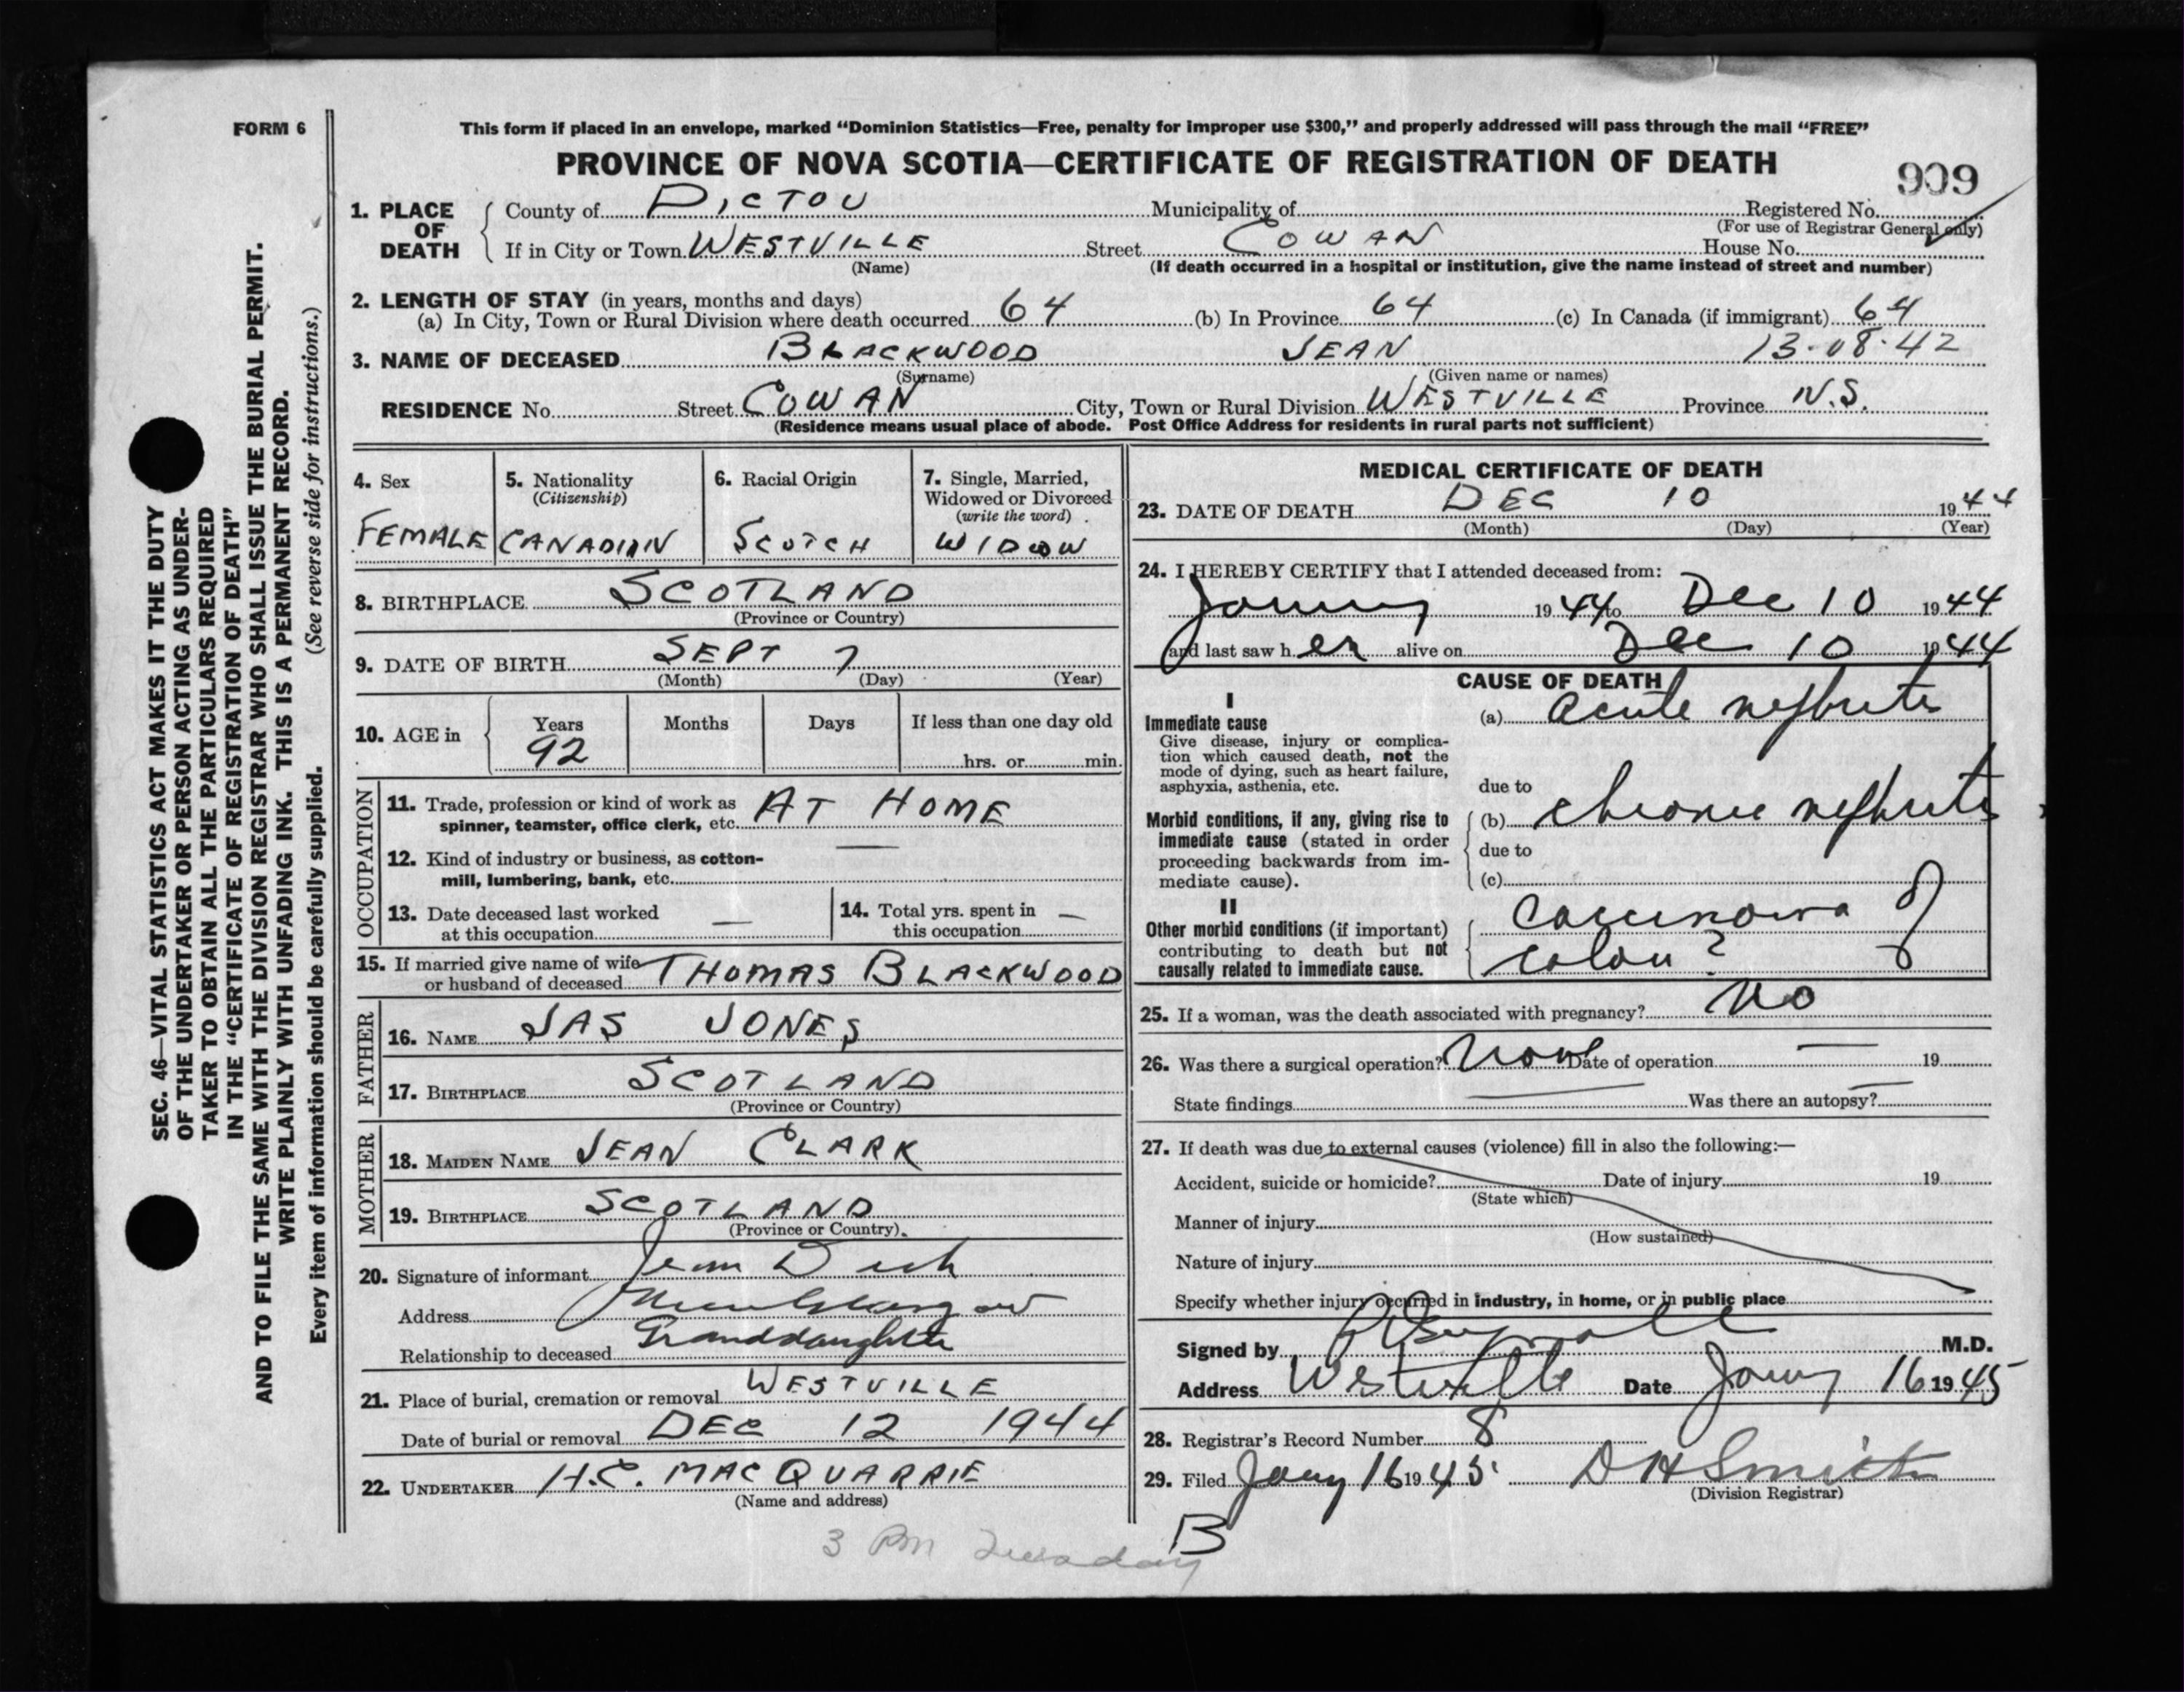 FORM 6
This form if placed in an envelope, marked "Dominion Statistics—Free, penalty for improper use $300," and properly addressed will pass through the mail "FREE"
PROVINCE OF NOVA SCOTIA—CERTIFICATE OF REGISTRATION OF DEATH
909
1. PLACE OF DEATH County of PICTOU Municipality of Registered No.
(For use of Registrar General only)
If in City or Town WESTVILLE Street COWAN House No.
(Name) (If death occurred in a hospital or institution, give the name instead of street and number)
2. LENGTH OF STAY (in years, months and days)
(a) In City, Town or Rural Division where death occurred 64 (b) In Province 64 (c) In Canada (if immigrant) 64
3. NAME OF DECEASED BLACKWOOD JEAN 13-08-42
(Surname) (Given name or names)
RESIDENCE No. Street COWAN City, Town or Rural Division WESTVILLE Province N.S.
(Residence means usual place of abode. Post Office Address for residents in rural parts not sufficient)
SEC. 46—VITAL STATISTICS ACT MAKES IT THE DUTY
OF THE UNDERTAKER OR PERSON ACTING AS UNDER-
TAKER TO OBTAIN ALL THE PARTICULARS REQUIRED
IN THE "CERTIFICATE OF REGISTRATION OF DEATH"
AND TO FILE THE SAME WITH THE DIVISION REGISTRAR WHO SHALL ISSUE THE BURIAL PERMIT.
WRITE PLAINLY WITH UNFADING INK. THIS IS A PERMANENT RECORD.
Every item of information should be carefully supplied. (See reverse side for instructions.)
4. Sex
FEMALE
5. Nationality
(Citizenship)
CANADIAN
6. Racial Origin
SCOTCH
7. Single, Married,
Widowed or Divorced
(write the word)
WIDOW
8. BIRTHPLACE SCOTLAND
(Province or Country)
9. DATE OF BIRTH SEPT 7
(Month) (Day) (Year)
10. AGE in Years Months Days If less than one day old
92 hrs. or min.
OCCUPATION
11. Trade, profession or kind of work as
spinner, teamster, office clerk, etc. AT HOME
12. Kind of industry or business, as cotton-
mill, lumbering, bank, etc. —
13. Date deceased last worked
at this occupation —
14. Total yrs. spent in
this occupation —
15. If married give name of wife
or husband of deceased THOMAS BLACKWOOD
FATHER
16. NAME JAS JONES
17. BIRTHPLACE SCOTLAND
(Province or Country)
MOTHER
18. MAIDEN NAME JEAN CLARK
19. BIRTHPLACE SCOTLAND
(Province or Country)
20. Signature of informant Jean
Address New Glasgow
Relationship to deceased Granddaughter
21. Place of burial, cremation or removal WESTVILLE
Date of burial or removal DEC 12 1944
22. UNDERTAKER H.C. MACQUARRIE
(Name and address)
MEDICAL CERTIFICATE OF DEATH
23. DATE OF DEATH DEC 10 1944
(Month) (Day) (Year)
24. I HEREBY CERTIFY that I attended deceased from:
Janury 1944 to Dec 10 1944
and last saw her alive on Dec 10 1944
CAUSE OF DEATH
I
Immediate cause
Give disease, injury or complica-
tion which caused death, not the
mode of dying, such as heart failure,
asphyxia, asthenia, etc.
(a) acute nephritis
due to
Morbid conditions, if any, giving rise to
immediate cause (stated in order
proceeding backwards from im-
mediate cause).
(b) chronic nephritis
due to
(c)
II
Other morbid conditions (if important)
contributing to death but not
causally related to immediate cause.
Carcinoma of
colon?
25. If a woman, was the death associated with pregnancy? No
26. Was there a surgical operation? None Date of operation — 19
State findings — Was there an autopsy? —
27. If death was due to external causes (violence) fill in also the following:—
Accident, suicide or homicide? Date of injury 19
(State which)
Manner of injury
(How sustained)
Nature of injury
Specify whether injury occurred in industry, in home, or in public place
Signed by M.D.
Address Westville Date Jany 16 1945
28. Registrar's Record Number 8
29. Filed Jany 16 1945 D H Smith
(Division Registrar)
B
3 PM Tuesday